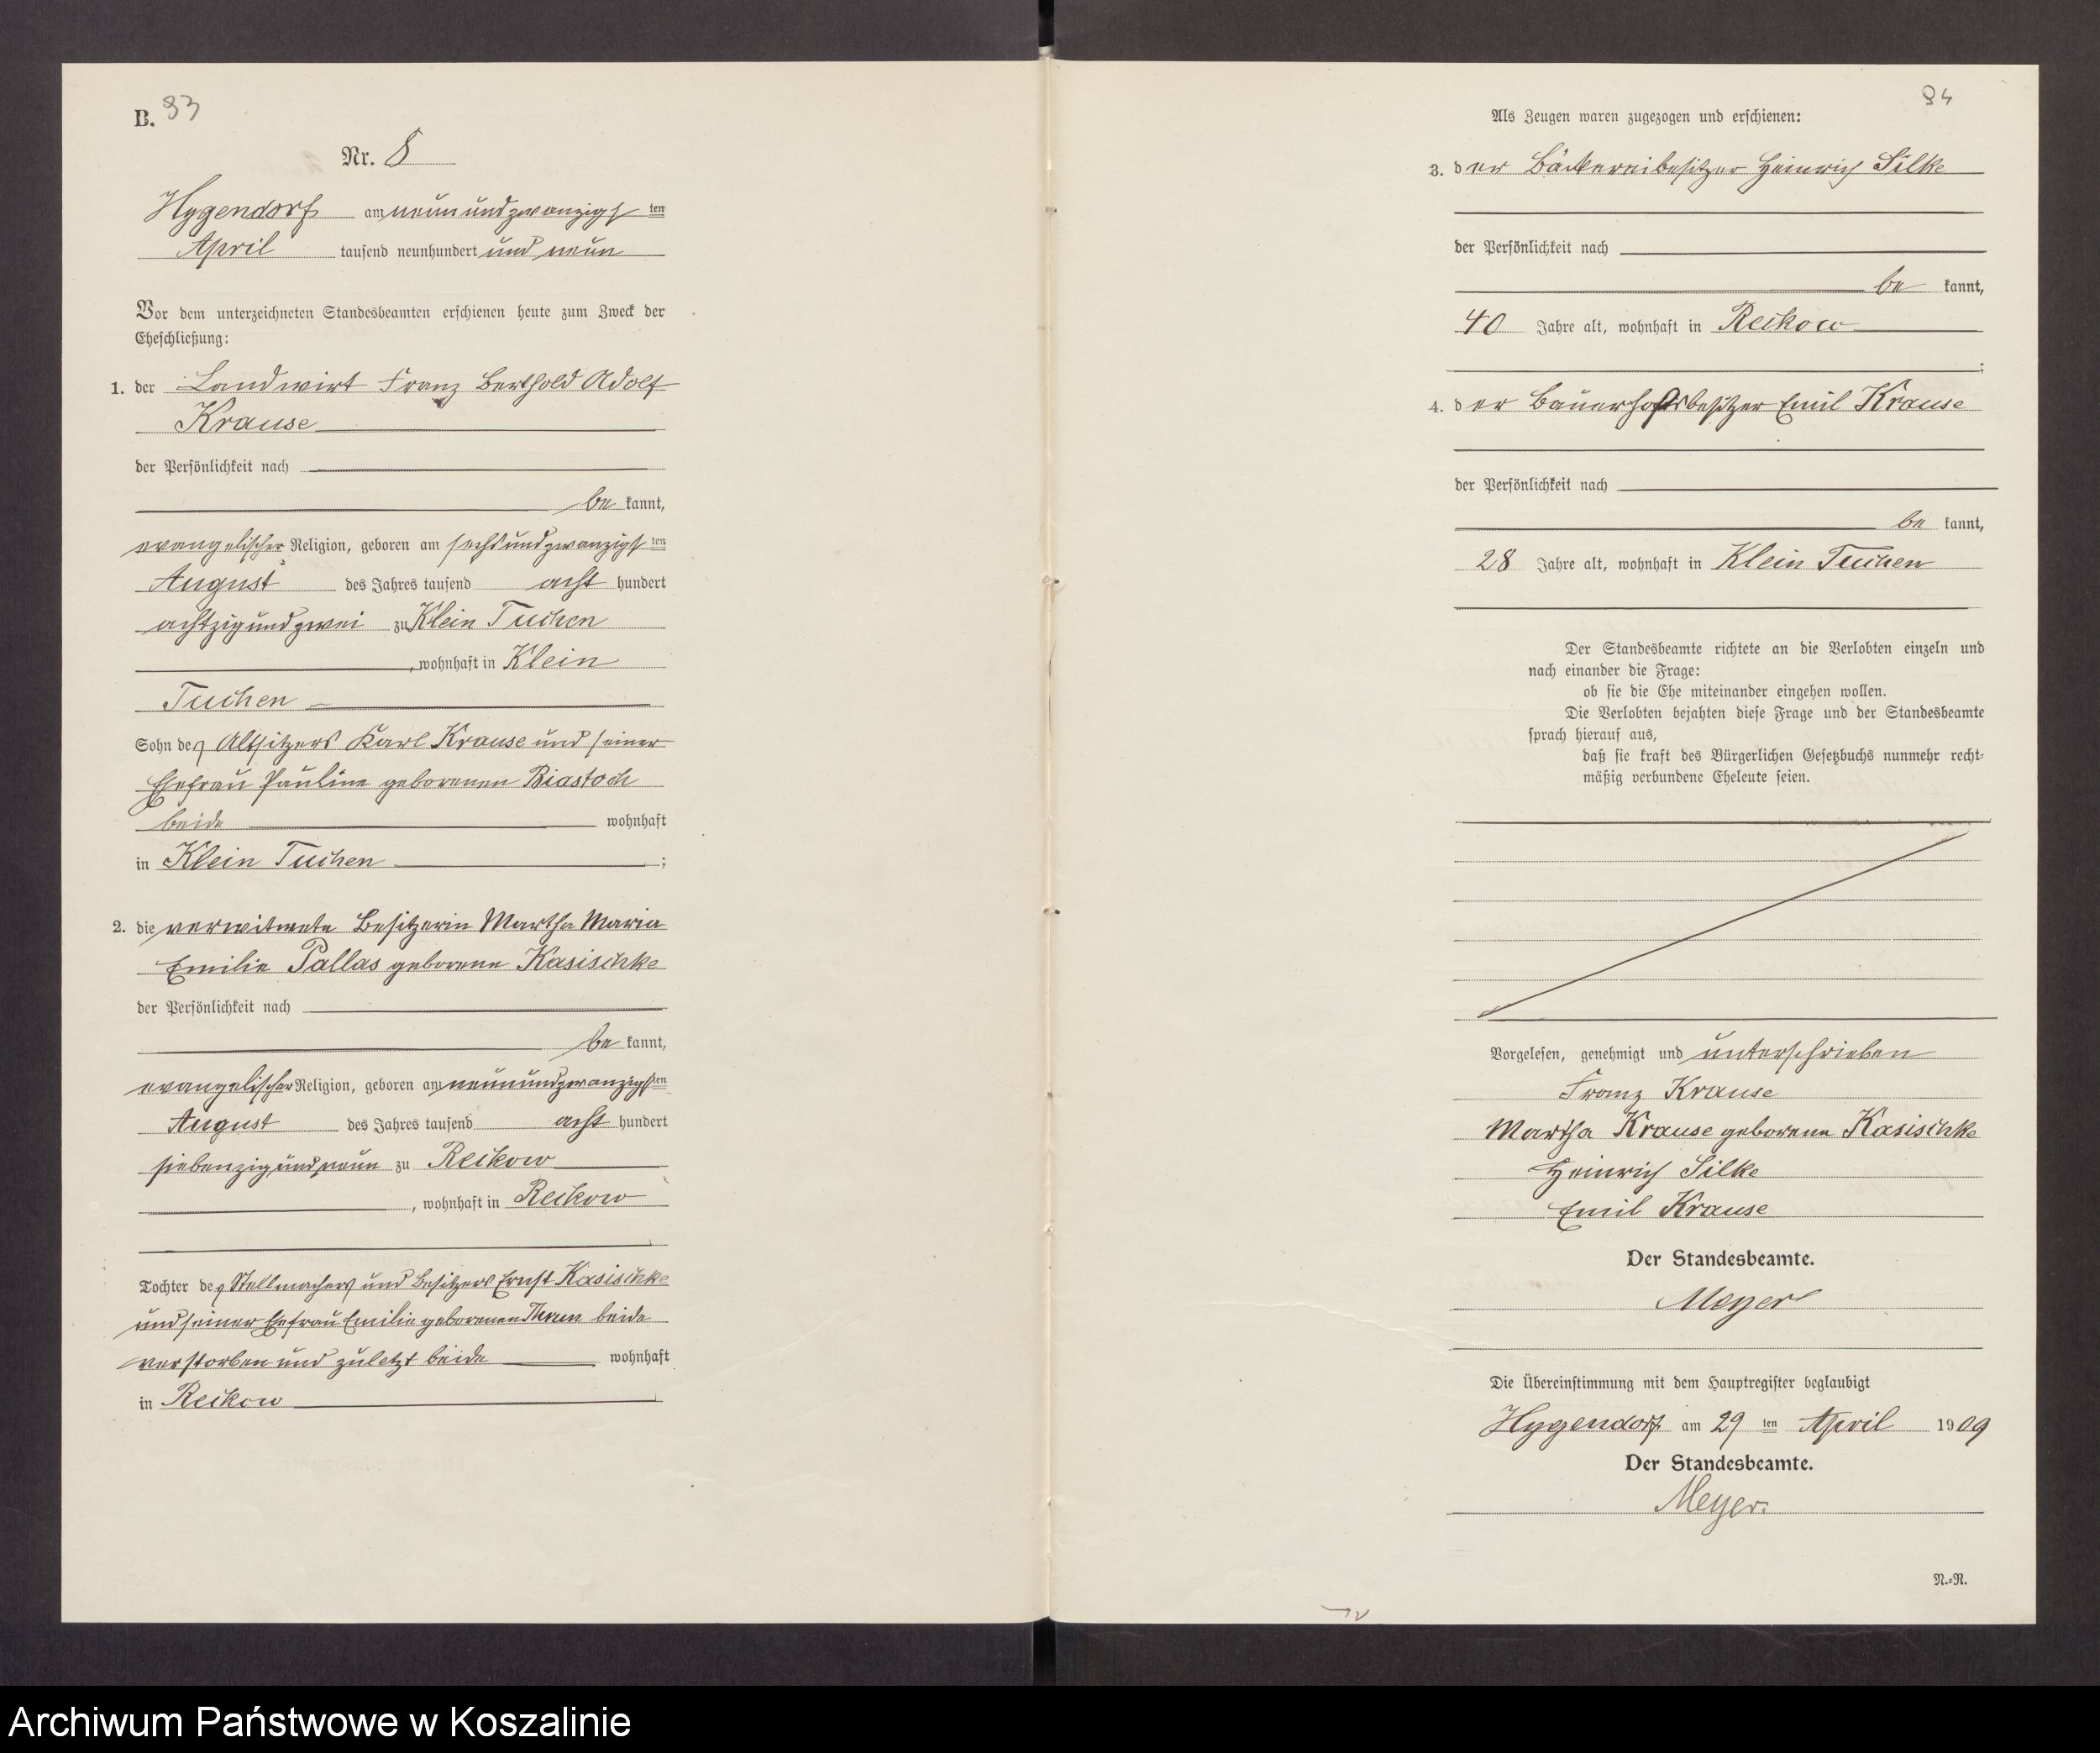 B. 93
Nr. 8
Hygendorf am neunundzwanzigsten
April tausend neunhundert und neun
Vor dem unterzeichneten Standesbeamten erschienen heute zum Zweck der
Eheschließung:
1. der Landwirt Franz Berthold Adolf
Krause
der Persönlichkeit nach
be kannt,
evangelischer Religion, geboren am sechsundzwanzigsten
August des Jahres tausend acht hundert
achtzig und zwei zu Klein Tuchen
, wohnhaft in Klein
Tuchen
Sohn des Altsitzers Karl Krause und seiner
Ehefrau Pauline geborenen Biastoch
beide wohnhaft
in Klein Tuchen ;
2. die verwitwete Besitzerin Martha Maria
Emilie Pallas geborene Kasischke
der Persönlichkeit nach
be kannt,
evangelischer Religion, geboren am neunundzwanzigsten
August des Jahres tausend acht hundert
siebenzig und neun zu Reckow
, wohnhaft in Reckow
Tochter des Stellmachers und Besitzers Ernst Kasischke
und seiner Ehefrau Emilie geborenen beide
verstorben und zuletzt beide wohnhaft
in Reckow
94
Als Zeugen waren zugezogen und erschienen:
3. der Bäckereibesitzer Heinrich Silke
der Persönlichkeit nach
be kannt,
40 Jahre alt, wohnhaft in Reckow
;
4. der Bauerhofsbesitzer Emil Krause
der Persönlichkeit nach
be kannt,
28 Jahre alt, wohnhaft in Klein Tuchen
Der Standesbeamte richtete an die Verlobten einzeln und
nach einander die Frage:
ob sie die Ehe miteinander eingehen wollen.
Die Verlobten bejahten diese Frage und der Standesbeamte
sprach hierauf aus,
daß sie kraft des Bürgerlichen Gesetzbuchs nunmehr recht-
mäßig verbundene Eheleute seien.
Vorgelesen, genehmigt und unterschrieben
Franz Krause
Martha Krause geborene Kasischke
Heinrich Silke
Emil Krause
Der Standesbeamte.
Meyer
Die Übereinstimmung mit dem Hauptregister beglaubigt
Hygendorf am 29 ten April 1909
Der Standesbeamte.
Meyer.
N.-R.
Archiwum Państwowe w Koszalinie